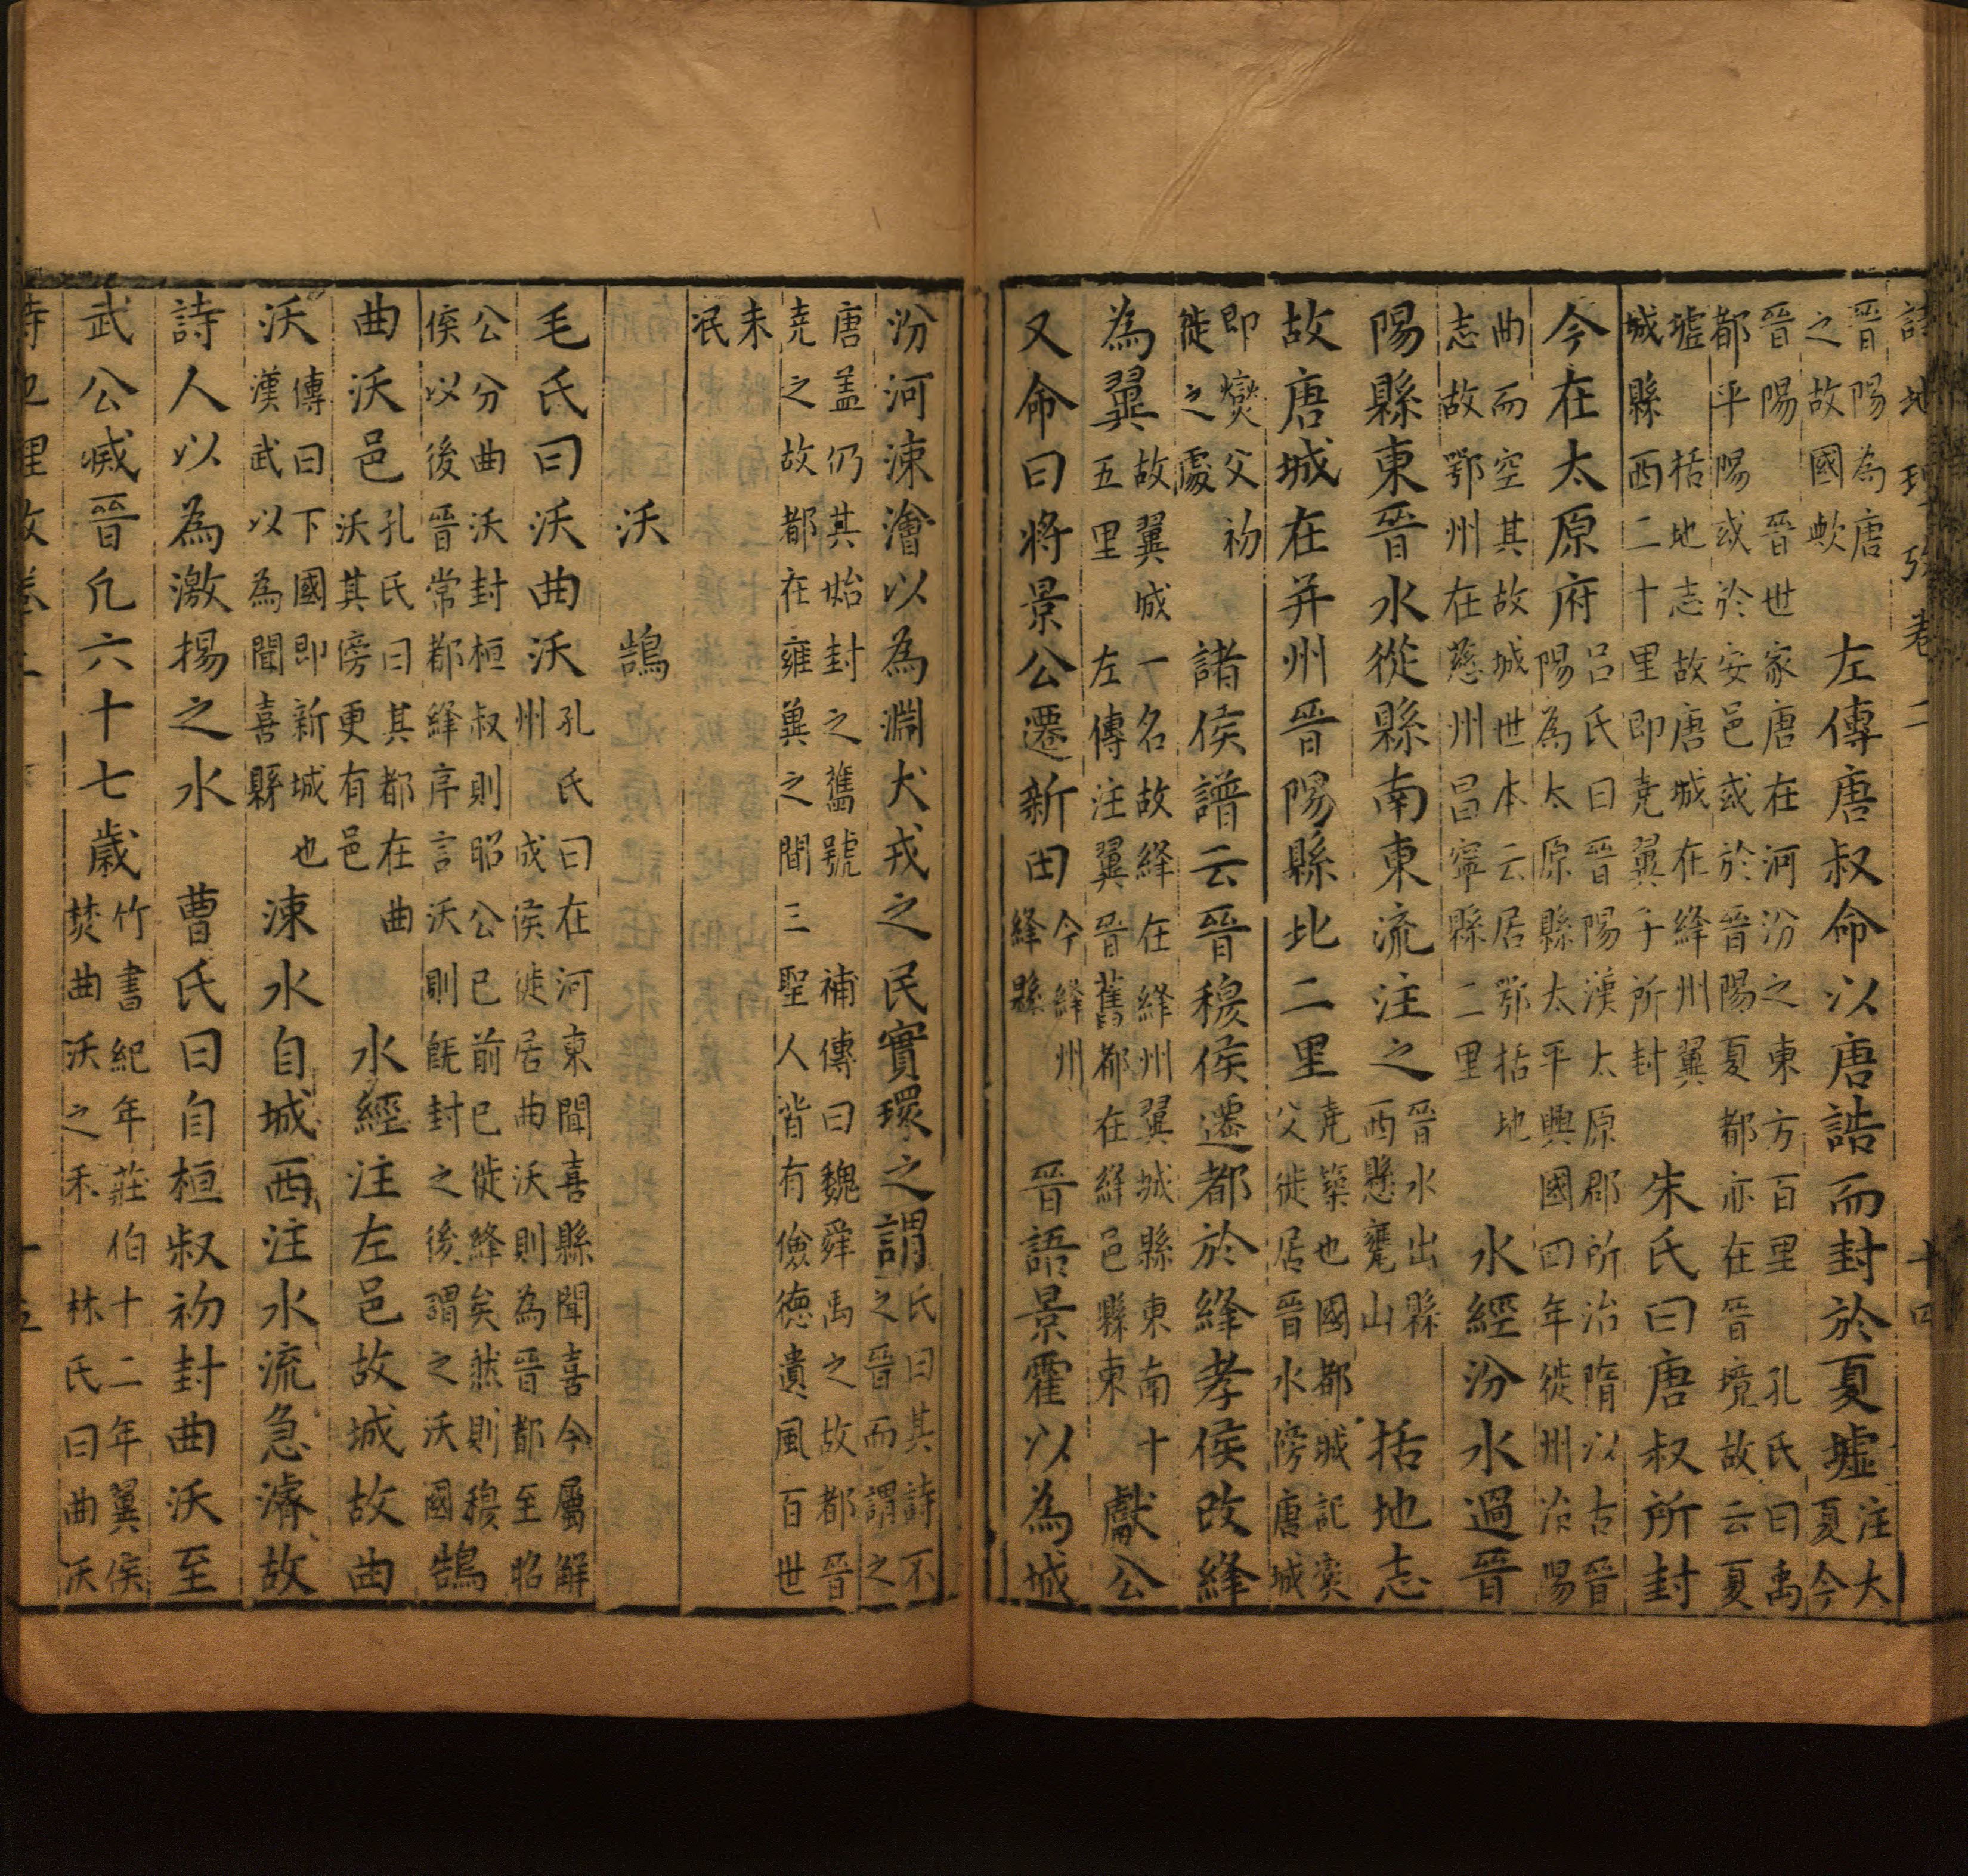 詩地理攷 卷二 十四
晉陽為唐
之故國歟
左傳唐叔命以唐誥而封於夏墟
注大
夏今
晉陽 晉世家唐在河汾之東方百里 孔氏曰禹
都平陽或於安邑或於晉陽夏都亦在晉境故云夏
墟 括地志故唐城在絳州翼
城縣西二十里即堯翼子所封
朱氏曰唐叔所封
今在太原府
呂氏曰晉陽漢太原郡所治隋以古晉
陽為太原縣太平興國四年徙州治陽
曲而空其故城世本云居鄂括地
志故鄂州在慈州昌寧縣二里
水經汾水過晉
陽縣東晉水從縣南東流注之
晉水出縣
西懸甕山
括地志
故唐城在并州晉陽縣北二里
堯築也國都城記爕
父徙居晉水傍唐城
即爕父初
徙之處
諸侯譜云晉穆侯遷都於絳孝侯改絳
為翼
故翼城一名故絳在絳州翼城縣東南十
五里 左傳注翼晉舊都在絳邑縣東
獻公
又命曰將景公遷新田
今絳州
絳縣
晉語景霍以為城
汾河涑澮以為淵犬戎之民實環之謂
氏曰其詩不
之晉而謂之
唐盖仍其始封之舊號 補傳曰魏舜禹之故都晉
堯之故都在雍冀之間三聖人皆有儉德遺風百世
未
泯
沃 鵠
毛氏曰沃曲沃
孔氏曰在河東聞喜縣聞喜今屬解
州 成侯徙居曲沃則為晉都至昭
公分曲沃封桓叔則昭公已前已徙絳矣然則穆
侯以後晉常都絳序言沃則既封之後謂之沃國
鵠
曲沃邑
孔氏曰其都在曲
沃其傍更有邑
水經注左邑故城故曲
沃
傳曰下國即新城也
漢武以為聞喜縣
涑水自城西注水流急濬故
詩人以為激揚之水 曹氏曰自桓叔初封曲沃至
武公滅晉凡六十七歲
竹書紀年莊伯十二年翼侯
焚曲沃之禾 林氏曰曲沃
詩地理攷卷二 十五